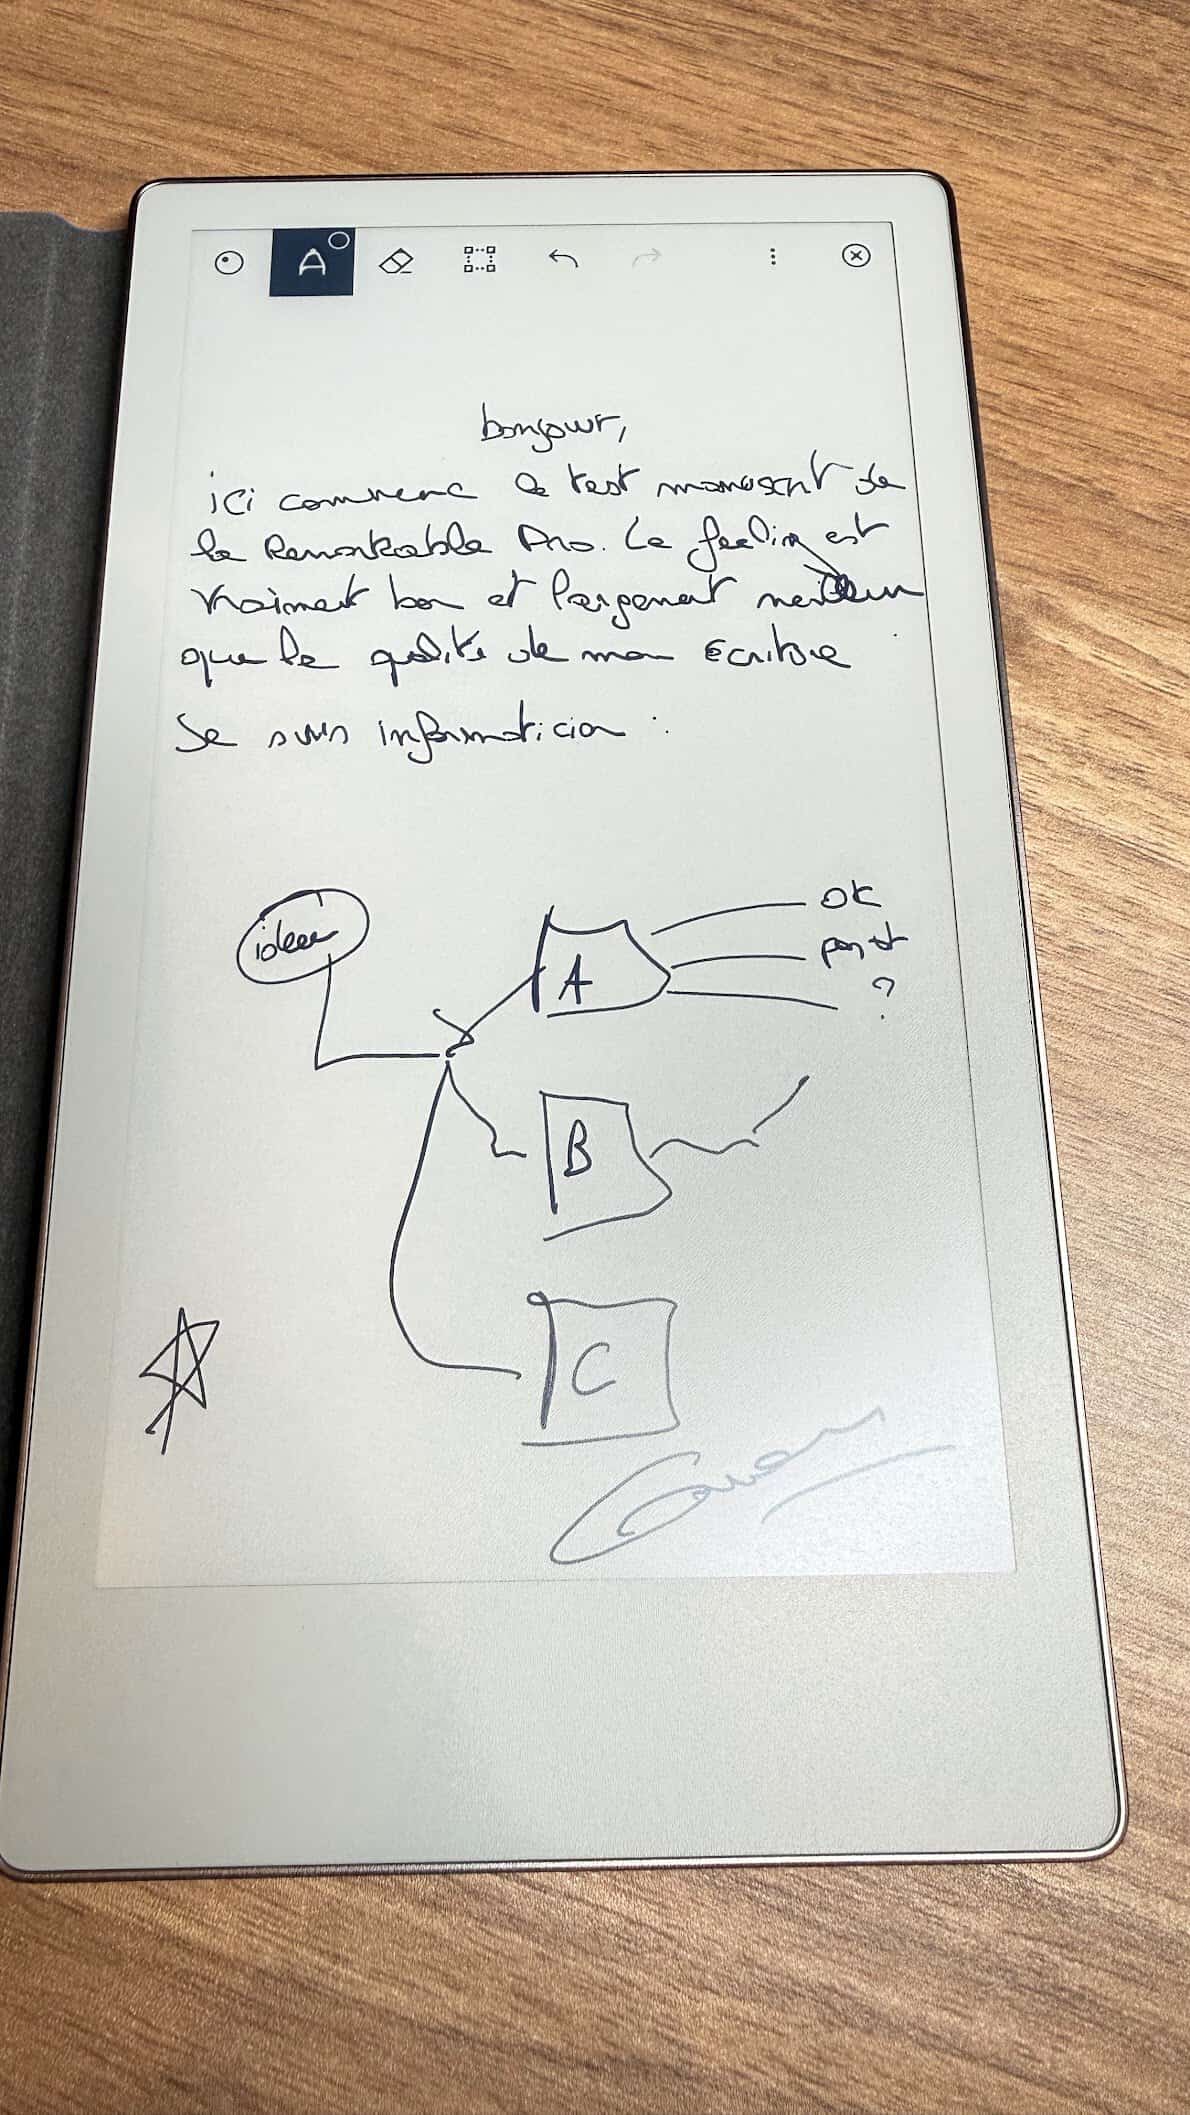 A
bonjour,
ici commence le test manuscrit de
la Remarkable Pro. Le feeling est
vraiment bon et largement meilleur
que la qualité de mon écriture
Je suis informaticien :
idées
OK
A
?
B
C